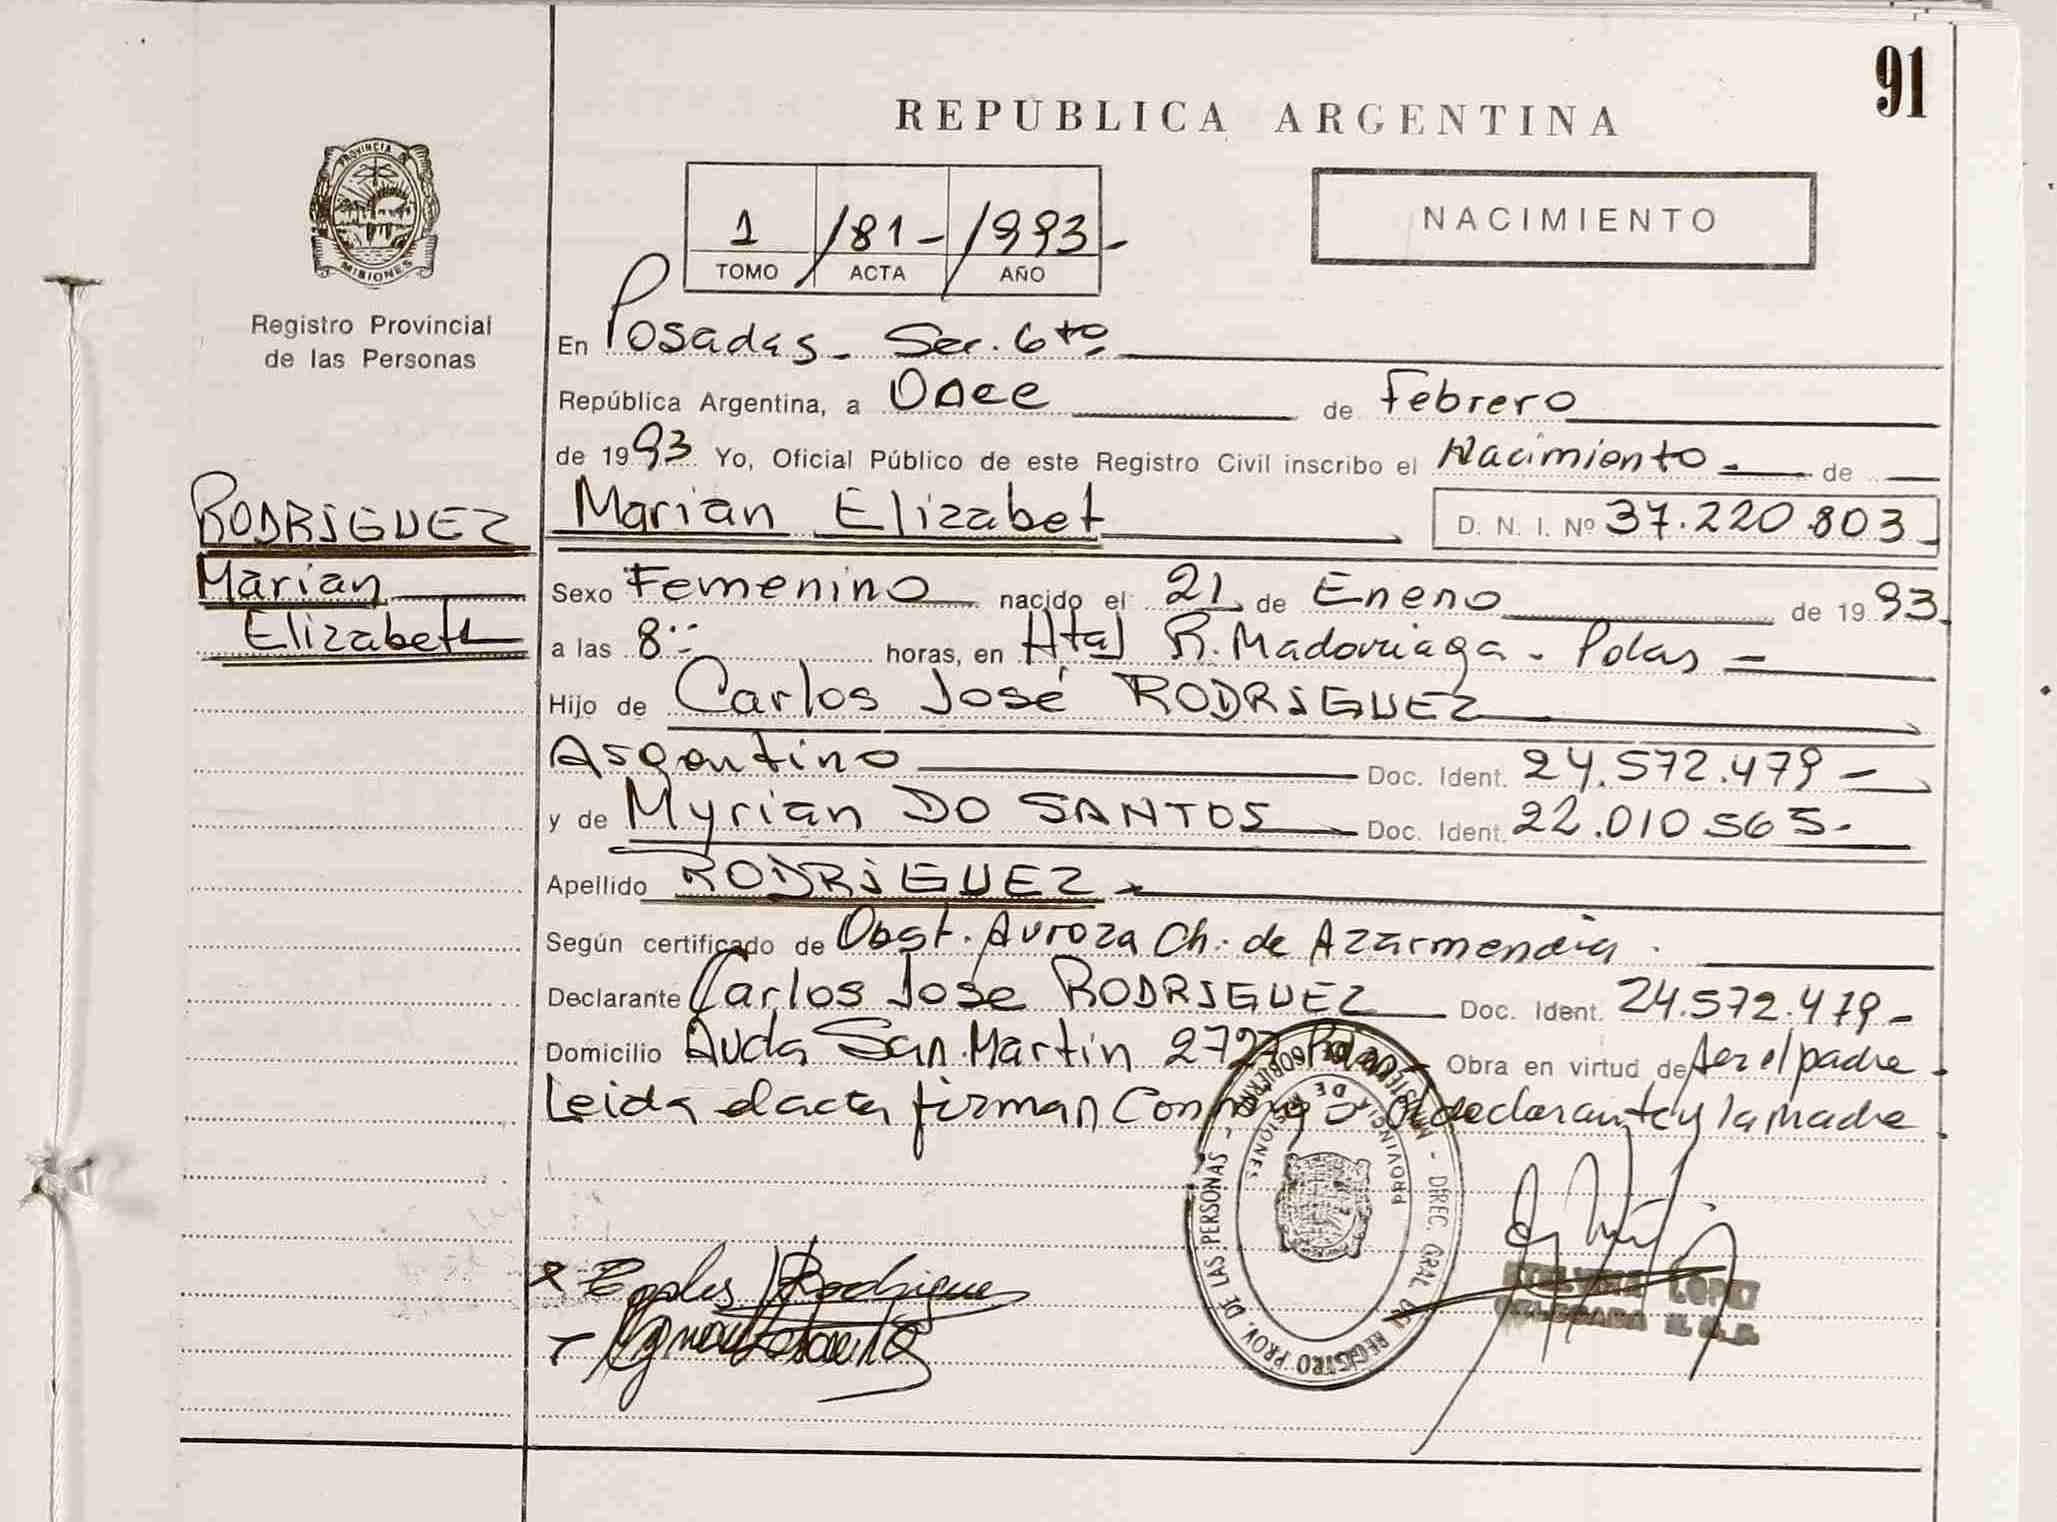 91
REPUBLICA ARGENTINA
PROVINCIA DE
MISIONES
Registro Provincial
de las Personas
1 181- 1993-
TOMO ACTA AÑO
NACIMIENTO
En Posadas - Sec. 6to
República Argentina, a Once de Febrero
de 1993 Yo, Oficial Público de este Registro Civil inscribo el Nacimiento - de
RODRIGUEZ
Marian
Elizabeth
Marian Elizabet D. N. I. Nº 37.220.803-
Sexo Femenino nacido el 21 de Eneno de 1993.
a las 8:- horas, en Htal R. Madariaga - Pdas -
Hijo de Carlos José RODRIGUEZ
Argentino Doc. Ident. 24.572.479-
y de Myrian DO SANTOS Doc. Ident. 22.010 565-
Apellido RODRIGUEZ
Según certificado de Obst. Aurora Ch. de Azarmendia.
Declarante Carlos Jose RODRIGUEZ Doc. Ident. 24.572.479-
Domicilio Avda San Martin 2727 Pdas - Obra en virtud de ser el padre.
Leida el acta firman conmigo el declarante y la madre.
DIREC. GRAL DEL REGISTRO PROV. DE LAS PERSONAS -
PROVINCIA DE MISIONES
x Rodriguez
LOPEZ
DELEGADA